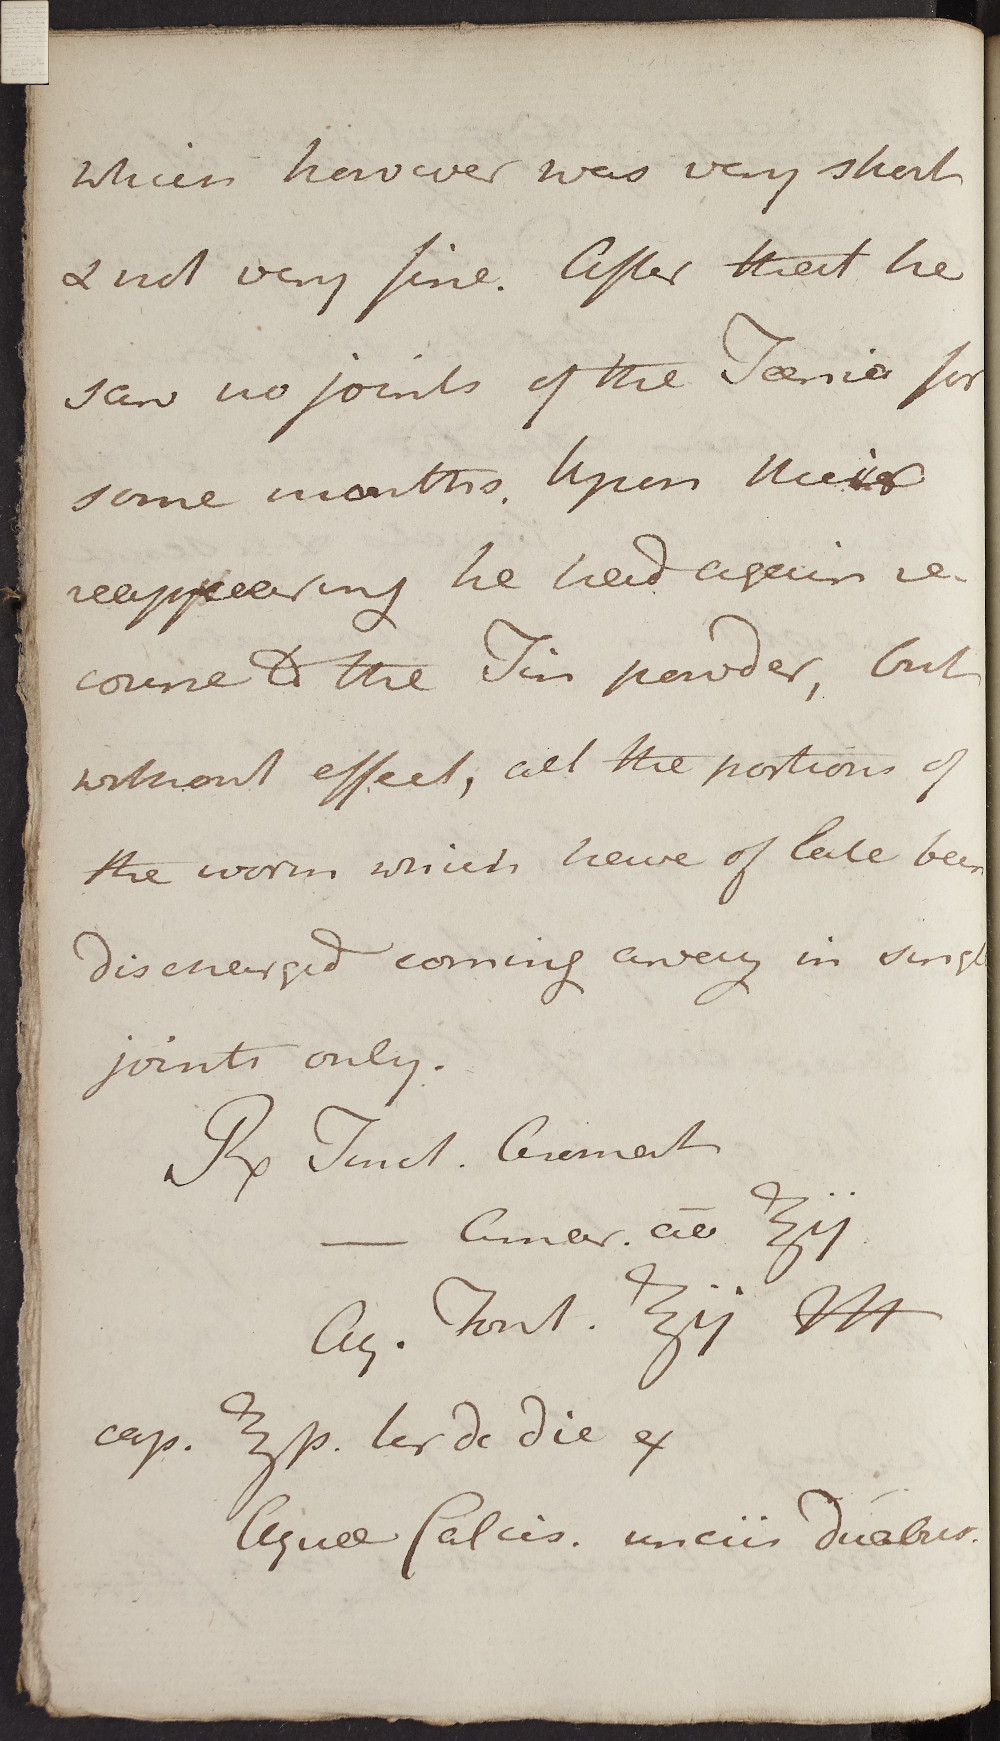 which however was very short
& not very fine. After that he
saw no joints of the Tænia for
some months. Upon their
reappearing he had again re-
course to the Tin powder, but
without effect, all the portions of
the worm which have of late been
discharged coming away in singl
joints only.
℞ Tinct. Aromat
— Amar. aa ℥ij
Aq. Font. ℥ij M
cap. ℥ß. ter de die ex
Aquæ Calcis. unciis duabus.